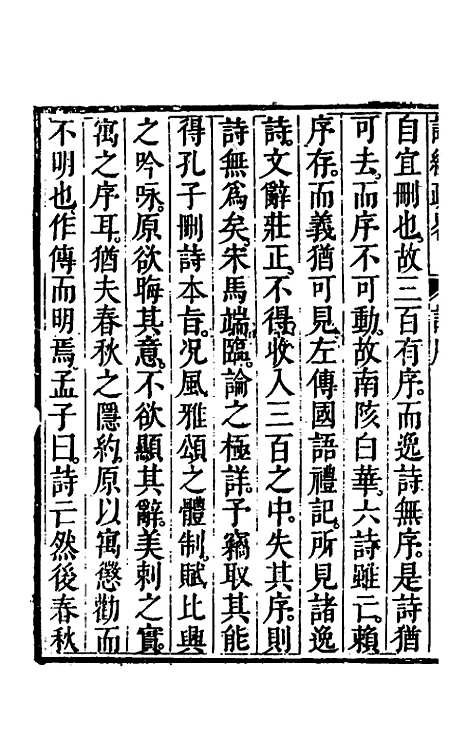 自宜刪也。故三百有序。而逸詩無序。是詩猶
可去。而序不可動。故南陔白華。六詩雖亡。賴
序存。而義猶可見。左傳國語禮記。所見諸逸
詩。文辭莊正。不得收入三百之中。失其序。則
詩無為矣。宋馬端臨。論之極詳。予竊取其能
得孔子刪詩本旨。况風雅頌之體制。賦比興
之吟咏。原欲晦其意。不欲顯其辭。美刺之實。
寓之序耳。猶夫春秋之隱約。原以寓懲勸。而
不明也。作傳而明焉。孟子曰。詩亡然後春秋